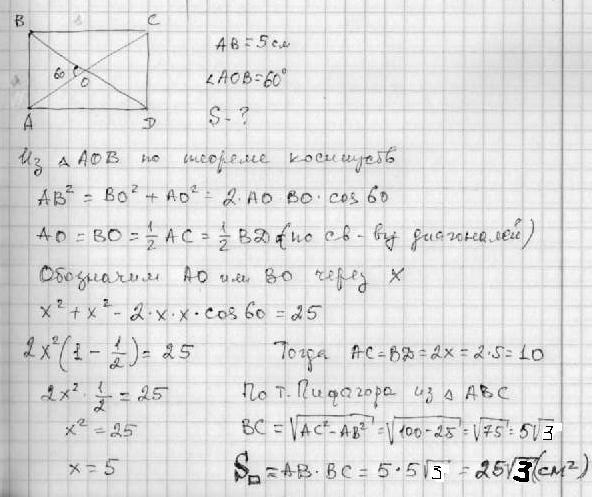 B C
AB = 5 см
60 O
∠AOB = 60°
A D
S - ?
Из △ AOB по теореме косинусов
AB² = BO² + AO² = 2·AO BO·cos 60
AO = BO = 1/2 AC = 1/2 BD (по св-ву диагоналей)
Обозначим AO или BO через x
x² + x² - 2·x·x·cos 60 = 25
2x²(1 - 1/2) = 25
Тогда AC = BD = 2x = 2·5 = 10
2x²·1/2 = 25
По т. Пифагора из △ ABC
x² = 25
BC = √(AC² - AB²) = √(100 - 25) = √75 = 5√3
x = 5
S▭ = AB·BC = 5·5√3 = 25√3 (см²)